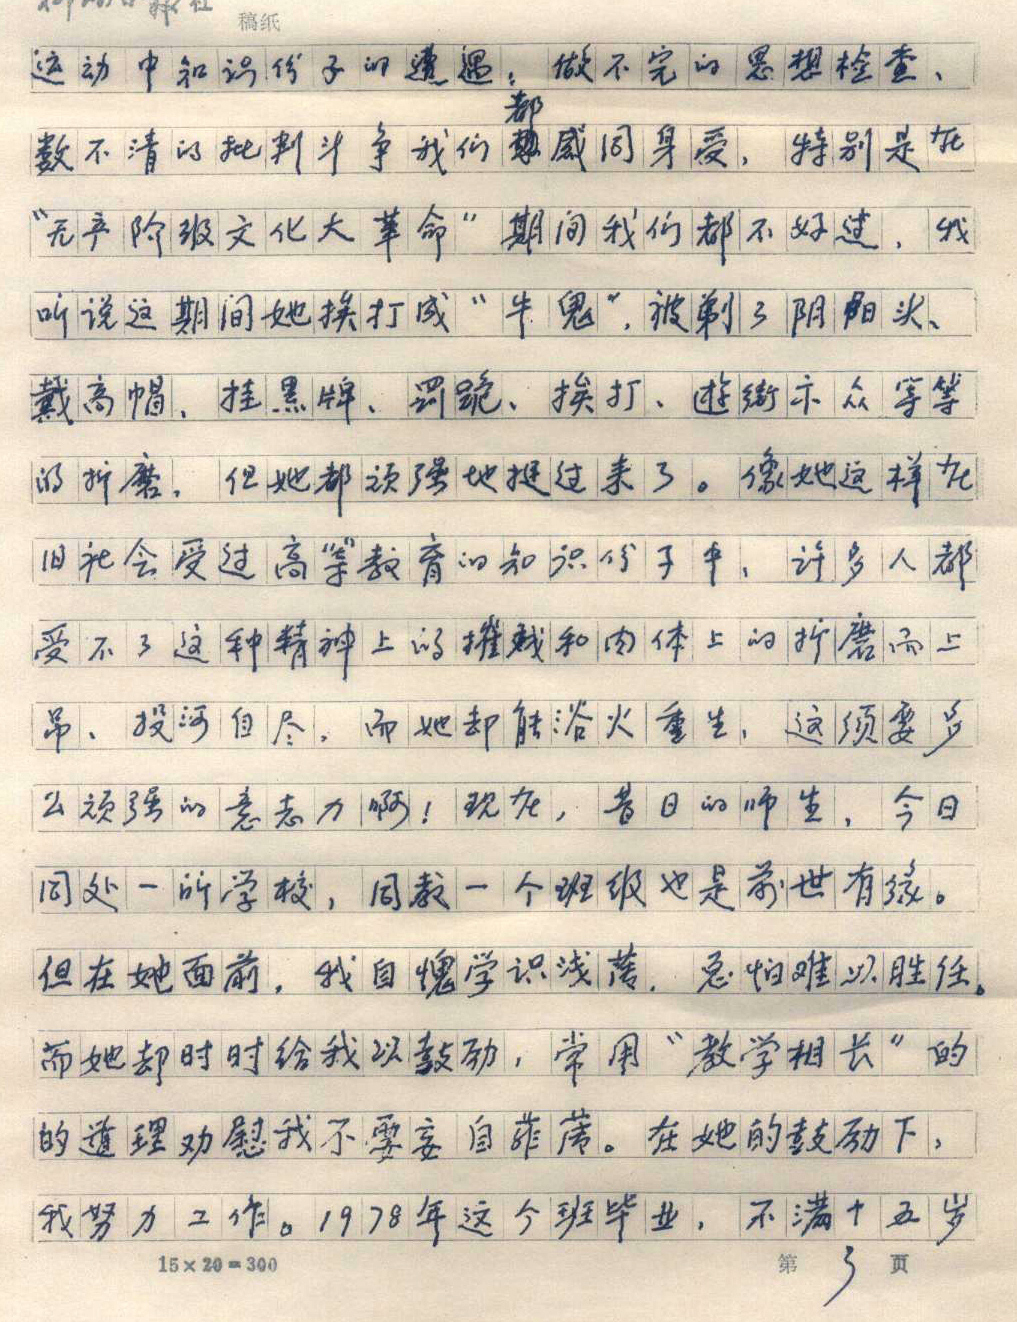 稿纸
运动中知识份子的遭遇：做不完的思想检查、
都
数不清的批判斗争我们感同身受，特别是在
“无产阶级文化大革命”期间我们都不好过，我
听说这期间她挨打成“牛鬼”，被剃了阴阳头、
戴高帽、挂黑牌、罚跪、挨打、遊街示众等等
的折磨，但她都顽强地挺过来了。像她这样在
旧社会受过高“等”教育的知识份子中，许多人都
受不了这种精神上的摧残和肉体上的折磨而上
吊、投河自尽，而她却能浴火重生，这须要多
么顽强的意志力啊！现在，昔日的师生，今日
同处一所学校，同教一个班级也是前世有缘。
但在她面前，我自愧学识浅薄，总怕难以胜任。
而她却时时给我以鼓励，常用“教学相长”的
的道理劝慰我不要妄自菲薄。在她的鼓励下，
我努力工作。1978年这个班毕业，不满十五岁
15×20=300
第3页